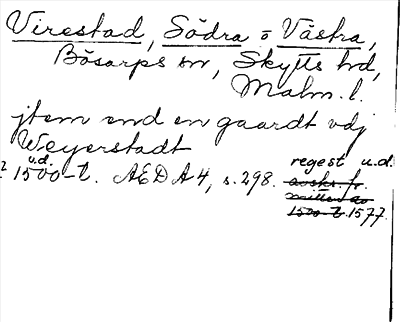 Virestad, Södra o Västra,
Bösarps sn, Skytts hd,
Malm. l.
jtem end en gaardt vdj
Weyerstadt
u.d.
? 1500-t. AEDA 4, s. 298.
regest u.d.
avskr. fr.
mitten av
1500-t. 1577.